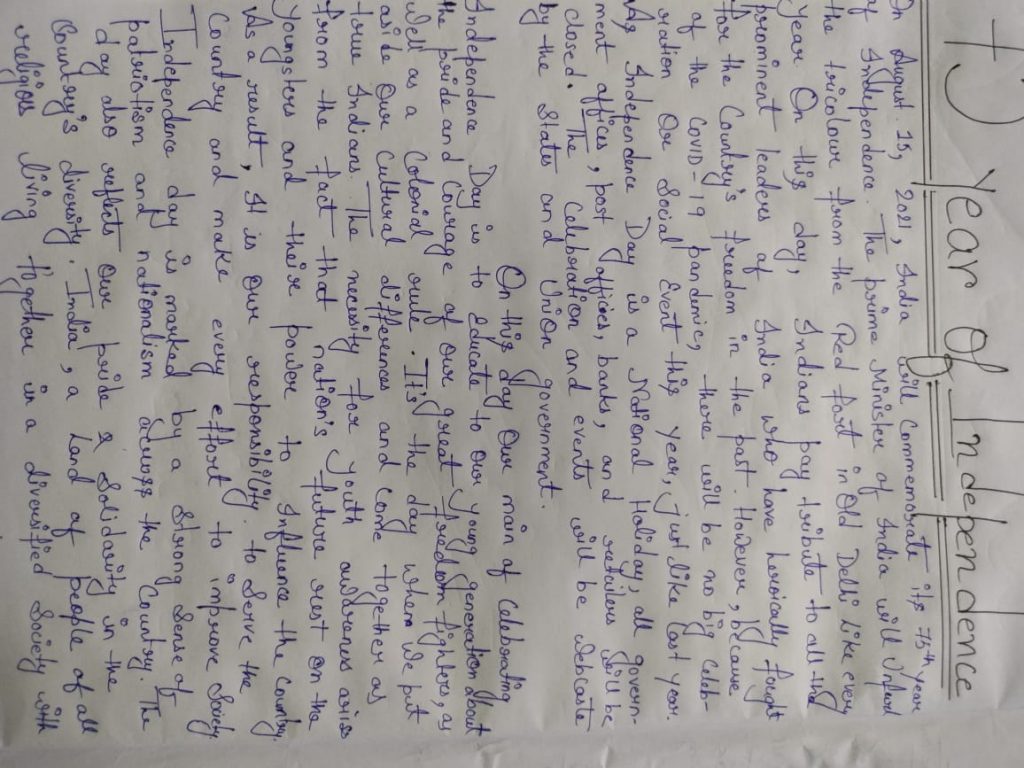 75 Year Of Independence
On August 15, 2021, India will Commemorate its 75th year
of Independence. The prime Minister of India will Unfurl
the tricolour from the Red fort in Old Delhi like every
year On this day, Indians pay tribute to all the
prominent leaders of India who have heroically fought
for the Country's freedom in the past. However, because
of the COVID-19 pandemic, there will be no big celeb-
ration Our Social Event this year, just like last year.
As Independence Day is a National Holiday, all govern-
ment offices, post offices, banks, and will be
closed. The Celebration and events will be
by the States and Union government.
On this day Our main of Celebrating
Independence Day is to Educate to our young generation about
the pride and Courage of our great freedom fighters, as
well as a Colonial rule. It's the day when we put
aside our Cultural differences and come together as
true Indians. The necessity for youth arises
from the fact that nation's future rest on the
youngsters and their power to Influence the country.
As a result, It is our responsibility to Serve the
Country and make every effort to improve Society
Independence day is marked by a Strong Sense of
patriotism and nationalism across the Country. The
day also reflects our pride & Solidarity in the
Country's diversity. India, a Land of people of all
religions living together in a diversified Society with